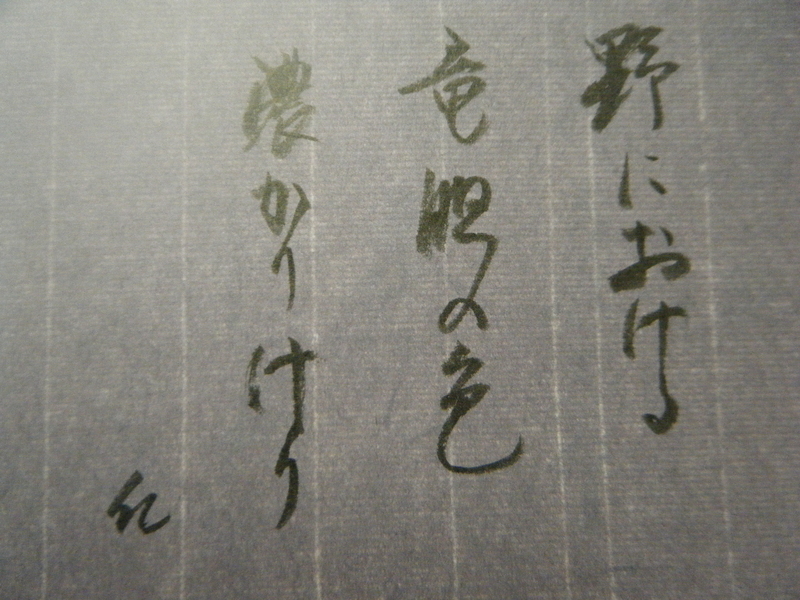 野における
竜胆の色
濃かりけり